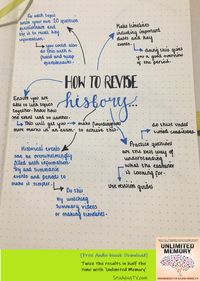 For each topic
write your own 20 question
questionnaire and
try it to recall key
information.
you could also
do this with a
friend and swap
questionnaires!
Make timelines
including important
dates and key
events.
doing this gives
you a good overview
of the period.
HOW TO REVISE
history...
Ensure you are
able to link topics
together - know how
one event led to another.
this will get you
more marks in an exam.
make flowdiagrams
to achieve this
Historical events
can be overwhelmingly
filled with information.
Try and summarise
events and periods to
make it simpler.
Do this
by watching
summary videos
or making timelines.
Practice questions
are the best way of
understanding
what the examiner
is looking for.
do these under
timed conditions.
Use revision guides
[Free Audio-book Download]
Twice the results in half the
time with 'Unlimited Memory'
UNLIMITED
MEMORY